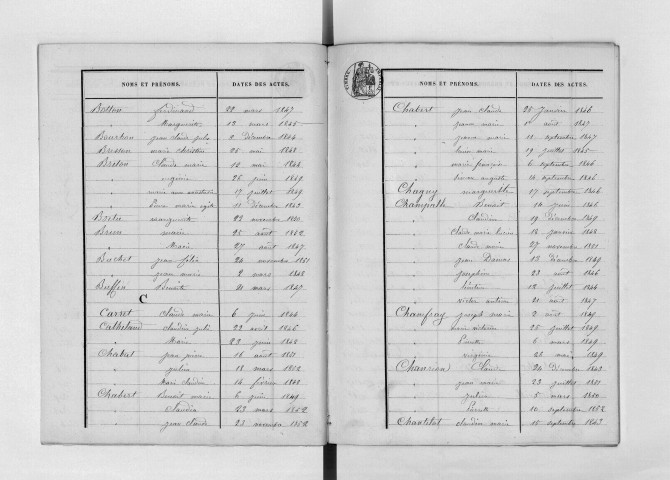 NOMS ET PRÉNOMS. DATES DES ACTES.
Botton ferdinand 22 mars 1847
" Marguerite 13 mars 1845
Bourchan jean claude 2 décembre 1844
Bresson marie christine 25 mai 1843
Breton Claude marie 12 mai 1844
" virginie 26 juin 1849
" marie 17 juillet 1849
" marie 11 décembre 1843
marguerite 22 novembre 1850
Brun marie 25 août 1852
" Marie 27 août 1847
Buchet jean félix 24 novembre 1851
" jean marie 2 mars 1843
Buffin Benoite 21 mars 1847
C
Carret Claude marie 6 juin 1844
Catheland claudine 22 août 1846
" Marie 23 juin 1848
Chabat jean pierre 16 août 1851
" julien 18 mars 1852
" Marie claudine 14 février 1843
Chabert Benoit marie 6 juin 1849
" Claudine 23 mars 1852
" jean claude 23 novembre 1852
NOMS ET PRÉNOMS. DATES DES ACTES.
Chabert jean claude 28 janvier 1846
" jeanne marie 1er août 1847
" jeanne marie 10 septembre 1847
" marie 19 juillet 1845
" marie françoise 6 septembre 1846
" auguste 14 septembre 1846
Chagny marguerite 17 septembre 1846
Champath Benoit 14 juin 1846
" Claudine 19 décembre 1849
" Claude marie 14 janvier 1843
" Claude marie 27 novembre 1851
" jean 13 décembre 1849
" josephine 23 août 1846
" 12 juillet 1844
" victor antoine 21 août 1847
Chamfray joseph marie 3 août 1849
" marie victoire 25 juillet 1849
" 6 mars 1849
" virginie 26 mai 1849
Chanrion Claude 24 décembre 1843
" jean marie 23 juillet 1851
" julien 5 mars 1850
" 10 septembre 1852
Chantelot claudine marie 15 septembre 1843